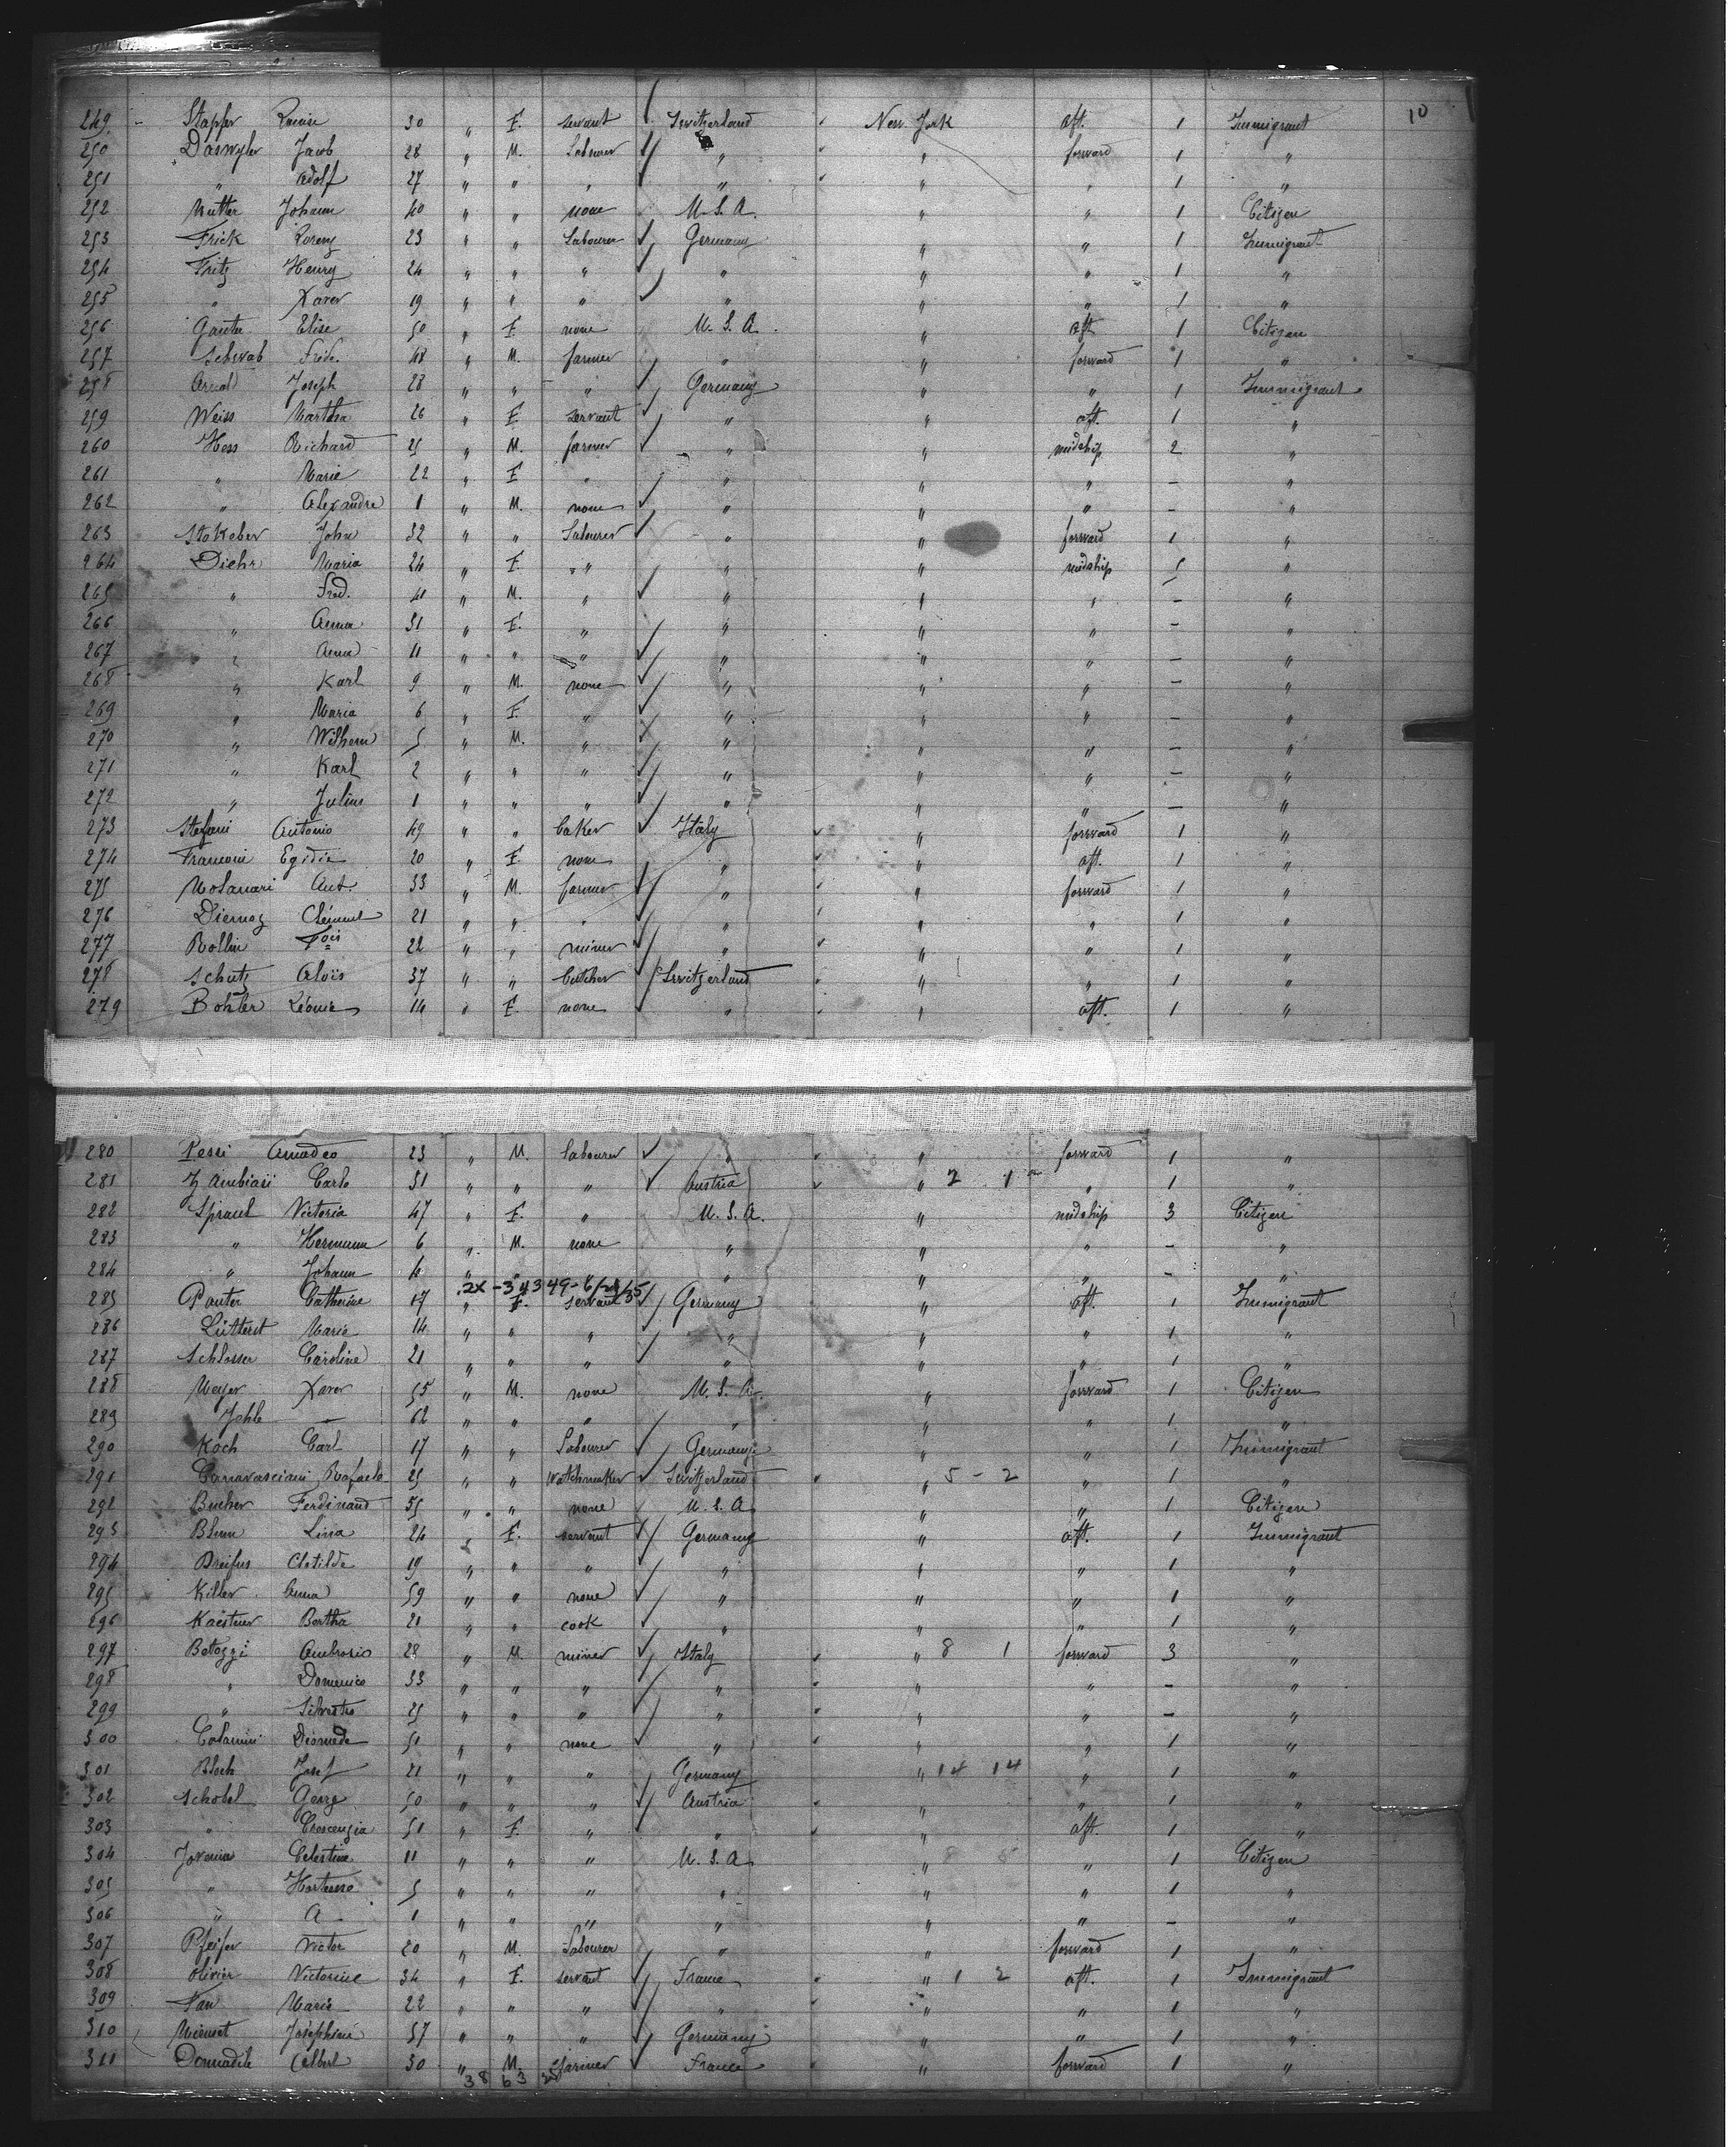 10
249 - Stapfer 30 " F. servant Switzerland New York aft. 1 Immigrant
250 Daswyler Jacob 28 " M. Labourer " " forward 1 "
251 " Adolf 27 " " " " " " 1 "
252 Mutter Johann 40 " " none U.S.A. " " 1 Citizen
253 Frick Lorenz 23 " " Labourer Germany " " 1 Immigrant
254 Fritz Henry 24 " " " " " " 1 "
255 " Xaver 19 " " " " " " 1 "
256 Ganter Elise 50 " F. none U.S.A. " aft. 1 Citizen
257 Schwab Fride. 48 " M. farmer " " forward 1 "
258 Arnold Joseph 28 " " " Germany " " 1 Immigrant
259 Weiss Martha 26 " F. servant " " aft. 1 "
260 Hess Richard 25 " M. farmer " " midship 2 "
261 " Marie 22 " F. " " " " - "
262 " Alexandre 1 " M. none " " " - "
263 Stokeber John 32 " " Labourer " " forward 1 "
264 Diehr Maria 24 " F. " " " midship 5 "
265 " Fred. 41 " M. " " " " - "
266 " Anna 31 " F. " " " " - "
267 " Anna 11 " " " " " " - "
268 " Karl 9 " M. none " " " - "
269 " Maria 6 " F. " " " " - "
270 " Wilhem 5 " M. " " " " - "
271 " Karl 2 " " " " " " - "
272 " Julius 1 " " " " " " - "
273 Stefani Antonio 49 " " baker Italy " forward 1 "
274 Franconi Egidie 20 " F. none " " aft. 1 "
275 Molanari Ant. 33 " M. farmer " " forward 1 "
276 Diemoz Clément 21 " " " " " " 1 "
277 Rollin Fois 22 " " miner " " " 1 "
278 Schutz Alois 37 " " butcher Switzerland " " 1 "
279 Bohler Léonie 14 " F. none " " aft. 1 "
280 Pessi Amadeo 23 " M. labourer " " forward 1 "
281 Zambiasi Carlo 31 " " " Austria " 2 1 " 1 "
282 Spraul Victoria 47 " F. " U.S.A. " midship 3 Citizen
283 " Hermann 6 " M. none " " " - "
284 " Johann 4 " " " " " " - "
2x-34349-6/24/35
285 Panter Catherine 17 " F. servant Germany " aft. 1 Immigrant
286 Lütterst Marie 14 " " " " " " 1 "
287 Schlosser Caroline 21 " " " " " " 1 "
288 Meyer Xaver 55 " M. none U.S.A. " forward 1 Citizen
289 Jehle - 62 " " " " " " 1 "
290 Koch Carl 17 " " Labourer Germany " " 1 Immigrant
291 Rafaele 25 " " watchmaker Switzerland " 5 - 2 " 1 "
292 Bucher Ferdinand 55 " " none U.S.A " " 1 Citizen
293 Blum Lina 24 " F. servant Germany " aft. 1 Immigrant
294 Dreifus Clotilde 19 " " " " " " 1 "
295 Killer Anna 59 " " none " " " 1 "
296 Kaestner Bertha 21 " " cook " " " 1 "
297 Betozzi Ambrosio 28 " M. miner Italy " 8 1 forward 3 "
298 " Domenico 33 " " " " " " - "
299 " Silvestro 25 " " " " " " - "
300 Colamini Diomede 51 " " none " " " 1 "
301 Bloch Josef 21 " " " Germany " 14 14 " 1 "
302 Schobel Georg 50 " " " Austria " " 1 "
303 " Crescenzia 51 " F. " " " aft. 1 "
304 Celestine 11 " " " U.S.A " 8 5 " 1 Citizen
305 " Hortense 5 " " " " " " 1 "
306 " A 1 " " " " " " - "
307 Pfeifer Victor 20 " M. Labourer " " forward 1 "
308 Olivier Victorine 34 " F. servant France " 1 2 aft. 1 Immigrant
309 Marie 22 " " " " " " 1 "
310 Josephine 37 " " " Germany " " 1 "
311 Albert 30 " M. farmer France " forward 1 "
38 63 25